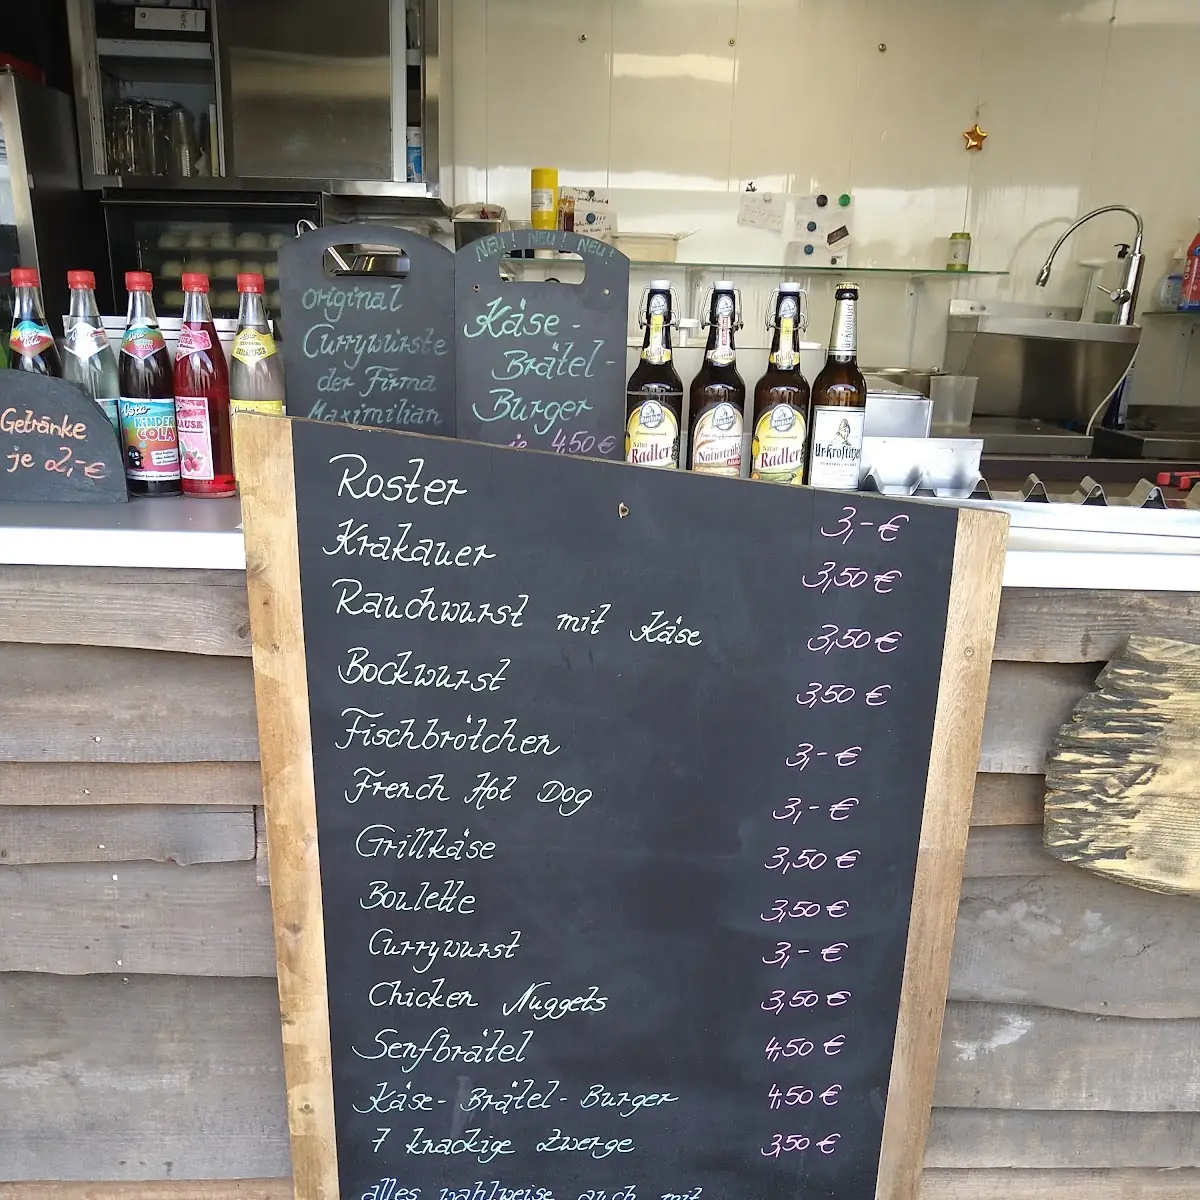 original
Currywürste
der Firma
Maximilian
NEU! NEU! NEU!
Käse-
Brätel-
Burger
je 4,50 €
Getränke
je 2,-€
Vita
KINDER
COLA
Natur
Radler
Naturtrüb
Natur
Radler
Ur-Krostitzer
Roster 3,-€
Krakauer 3,50 €
Rauchwurst mit Käse 3,50 €
Bockwurst 3,50 €
Fischbrötchen 3,- €
French Hot Dog 3,- €
Grillkäse 3,50 €
Boulette 3,50 €
Currywurst 3,- €
Chicken Nuggets 3,50 €
Senfbrätel 4,50 €
Käse- Brätel- Burger 4,50 €
7 knackige Zwerge 3,50 €
alles wahlweise auch mit